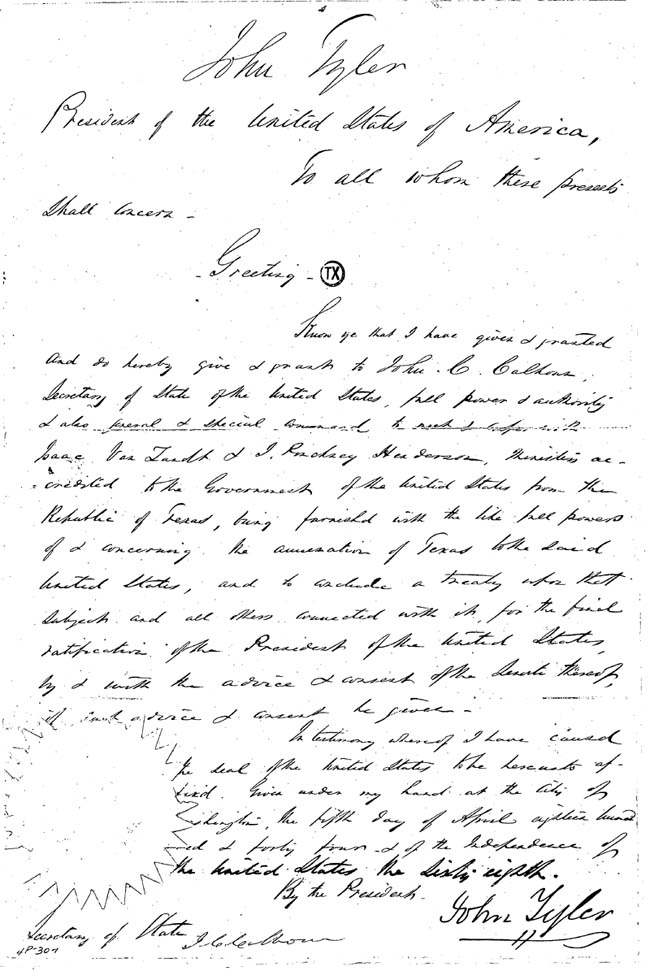 John Tyler
President of the United States of America,
To all whom these presents
Shall concern -
- Greeting -
TX
Know ye that I have given & granted
and do hereby give & grant to John. C. Calhoun,
Secretary of State of the United States, full power & authority
& also general & special command to meet & confer with
Isaac Van Zandt & J. Pinckney Henderson, Ministers ac-
credited to the Government of the United States from the
Republic of Texas, being furnished with the like full powers
of & concerning the annexation of Texas to the said
United States, and to conclude a treaty upon that
subject and all others connected with it, for the final
ratification of the President of the United States,
by & with the advice & consent of the Senate thereof,
if such advice & consent be given -
In testimony whereof I have caused
the seal of the United States to be hereunto af-
fixed. Given under my hand at the City of
shington, the fifth day of April eighteen hund
red & forty four & of the Independence of
the United States the Sixty eighth.
By the President.
John Tyler
Secretary of State
J. C. Calhoun
4P-304